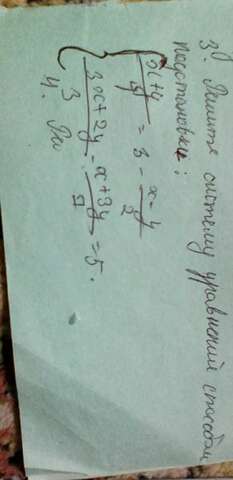 3. Решите систему уравнений способом
подстановки:
{ (x+y)/4 = 3 - (x-y)/2
(3x+2y)/3 - (x+3y)/7 = 5.
4. Ре